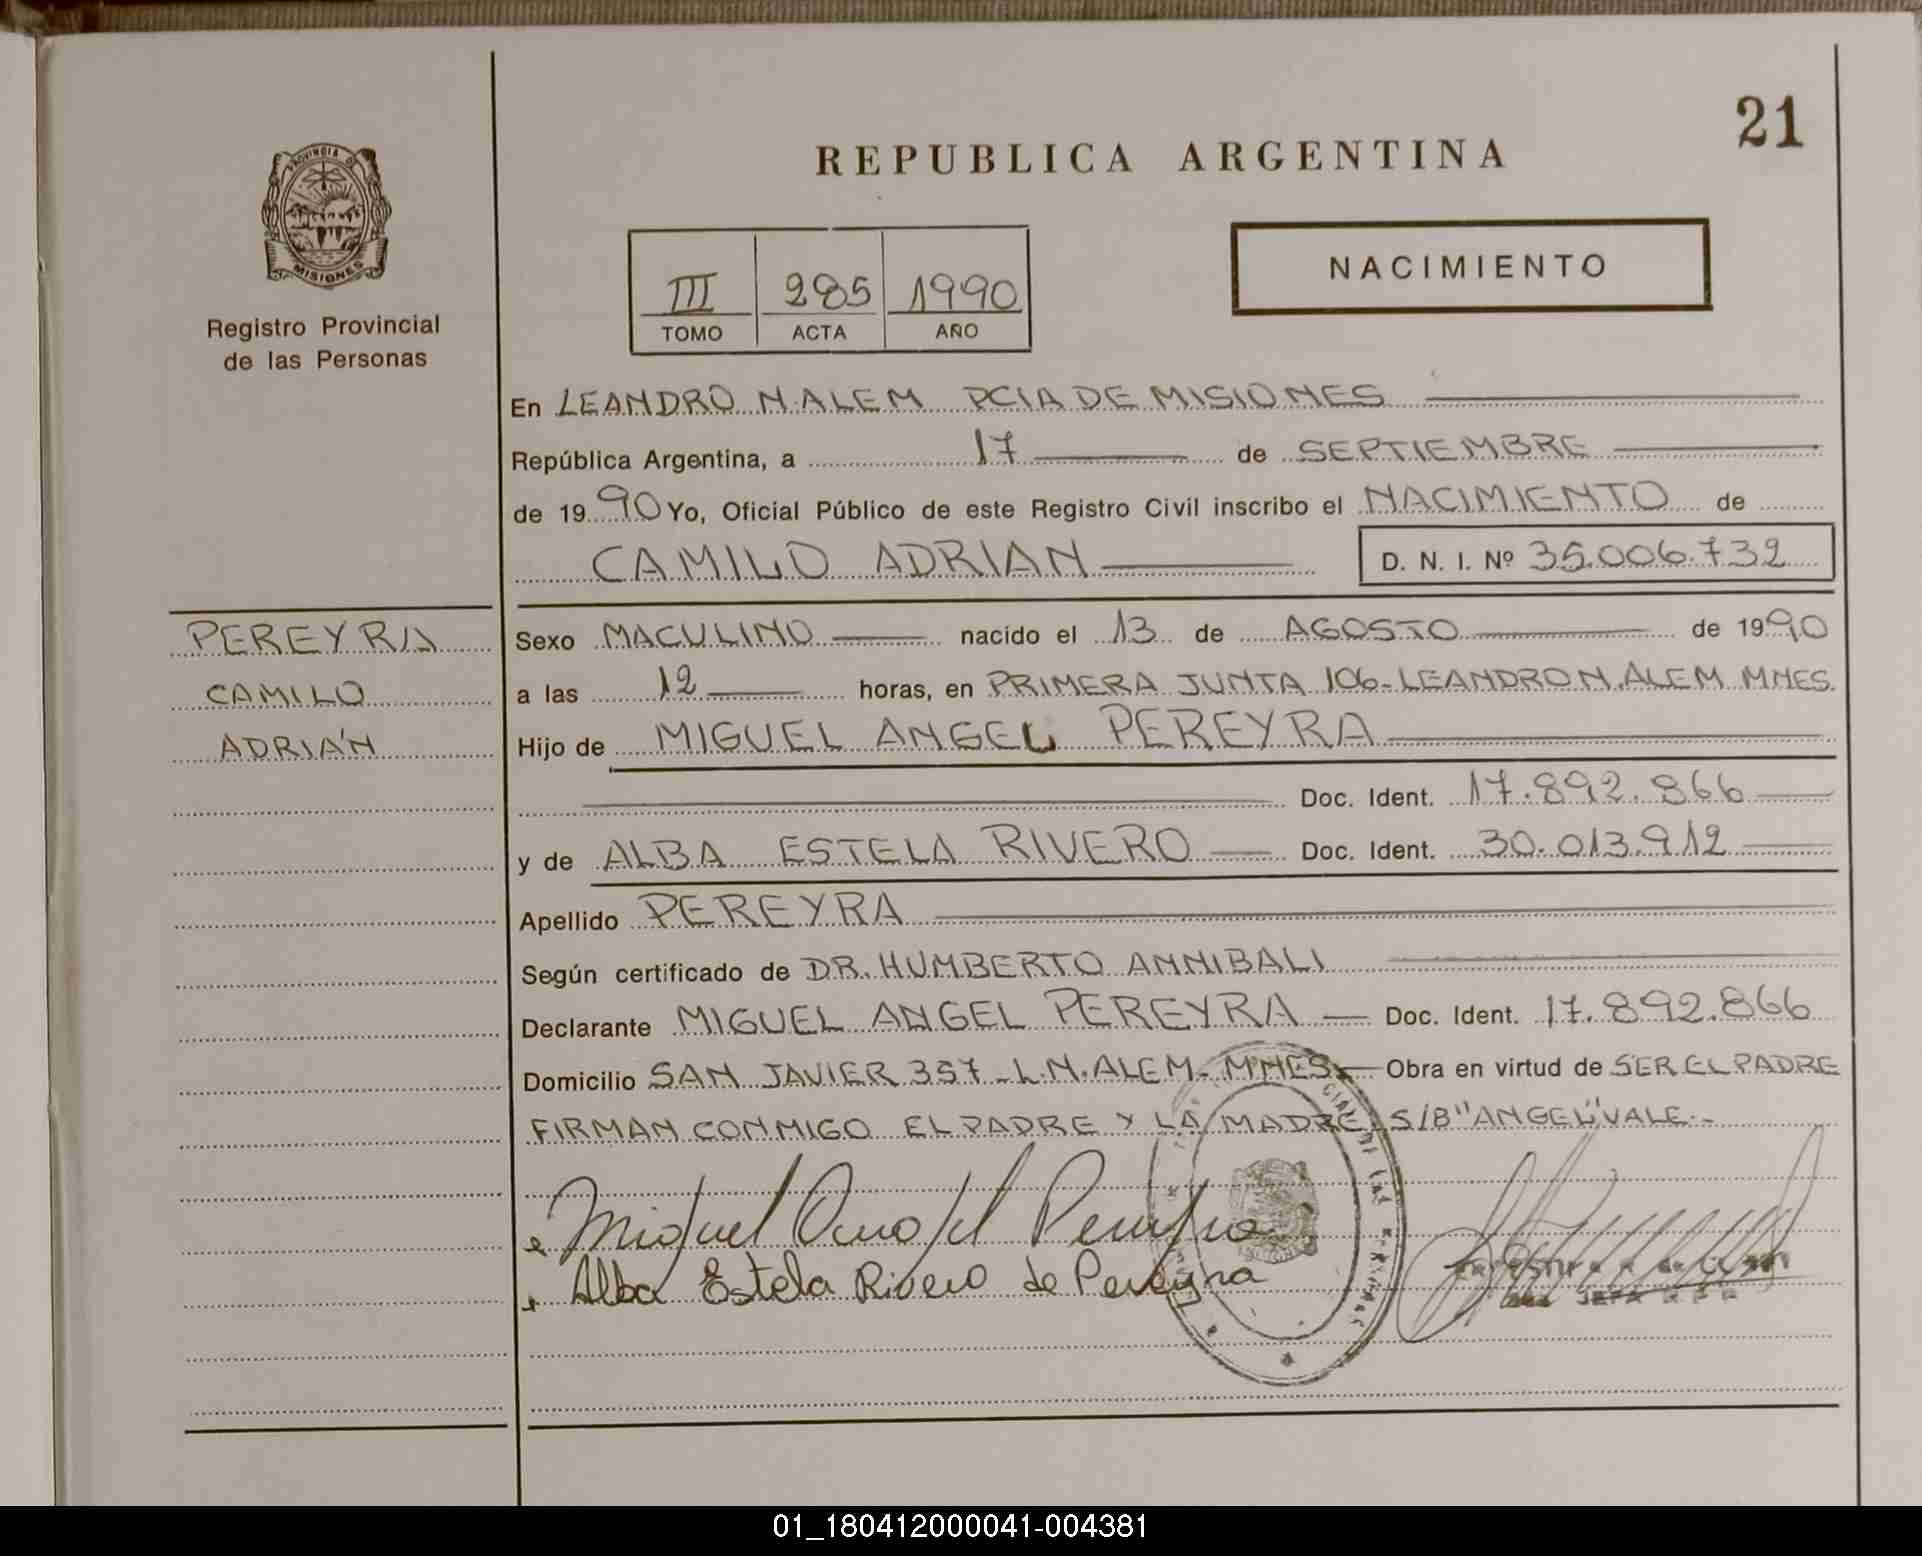 21
REPUBLICA ARGENTINA
PROVINCIA DE
MISIONES
Registro Provincial
de las Personas
III 285 1990
TOMO ACTA AÑO
NACIMIENTO
En LEANDRO N. ALEM PCIA DE MISIONES
República Argentina, a 17 de SEPTIEMBRE
de 1990 Yo, Oficial Público de este Registro Civil inscribo el NACIMIENTO de
CAMILO ADRIAN D. N. I. Nº 35.006.732
PEREYRA
CAMILO
ADRIÁN
Sexo MACULINO nacido el 13 de AGOSTO de 1990
a las 12 horas, en PRIMERA JUNTA 106-LEANDRO N. ALEM MNES.
Hijo de MIGUEL ANGEL PEREYRA
Doc. Ident. 17.892.866
y de ALBA ESTELA RIVERO Doc. Ident. 30.013.912
Apellido PEREYRA
Según certificado de DR. HUMBERTO ANNIBALI
Declarante MIGUEL ANGEL PEREYRA Doc. Ident. 17.892.866
Domicilio SAN JAVIER 357 - L.N. ALEM - MNES - Obra en virtud de SER EL PADRE
FIRMAN CONMIGO EL PADRE Y LA MADRE S/B "ANGEL" VALE.-
Miguel Angel Pereyra
Alba Estela Rivero de Pereyra
JEFA
01_180412000041-004381